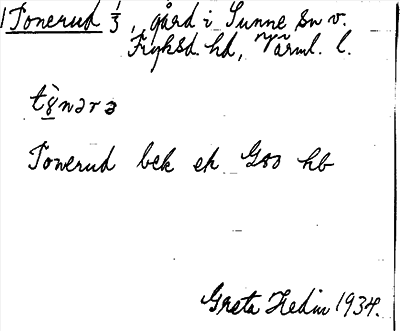 1 Tonerud 1/3, gård i Sunne sn v.
Fryksd. hd, Värml. l.
Tonerud bek ek G00 hb
Greta Hedin 1934.